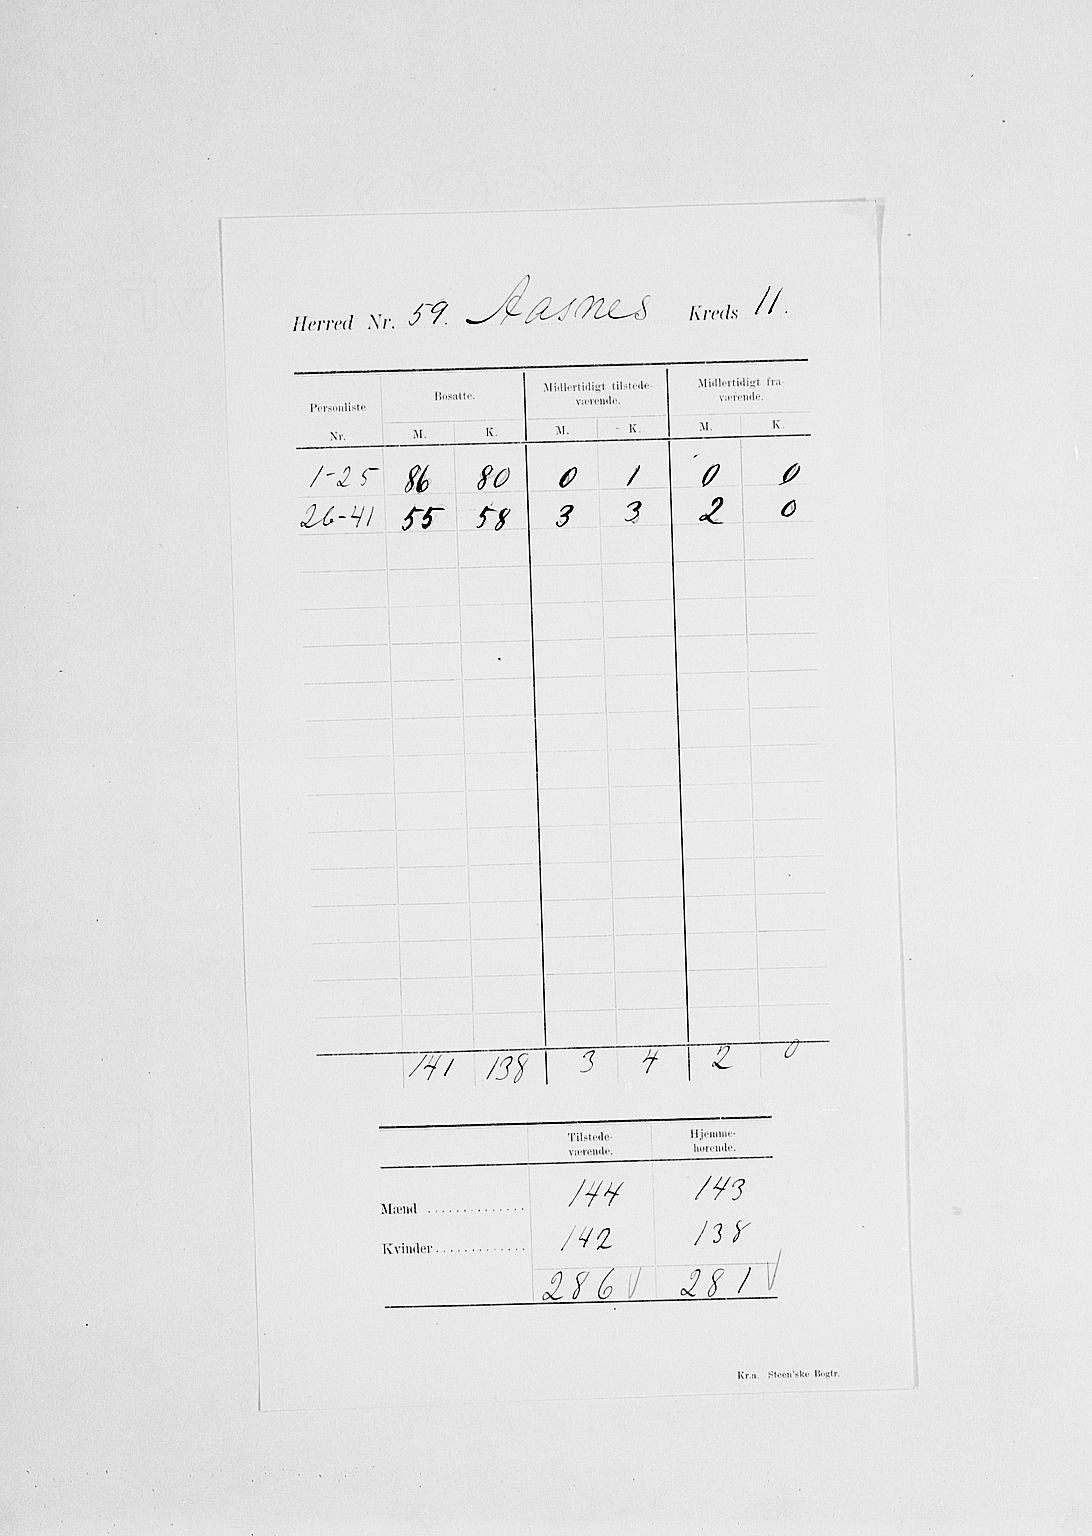 Herred Nr. 59. Aasnes Kreds 11.
Personliste Nr. Bosatte. Midlertidigt tilstede-værende. Midlertidigt fra-værende.
M. K. M. K. M. K.
1-25 86 80 0 1 0 0
26-41 55 58 3 3 2 0
141 138 3 4 2 0
Tilstede-værende. Hjemme-hørende.
Mænd .............. 144 143
Kvinder............. 142 138
286 281
Kr.a. Steen'ske Bogtr.